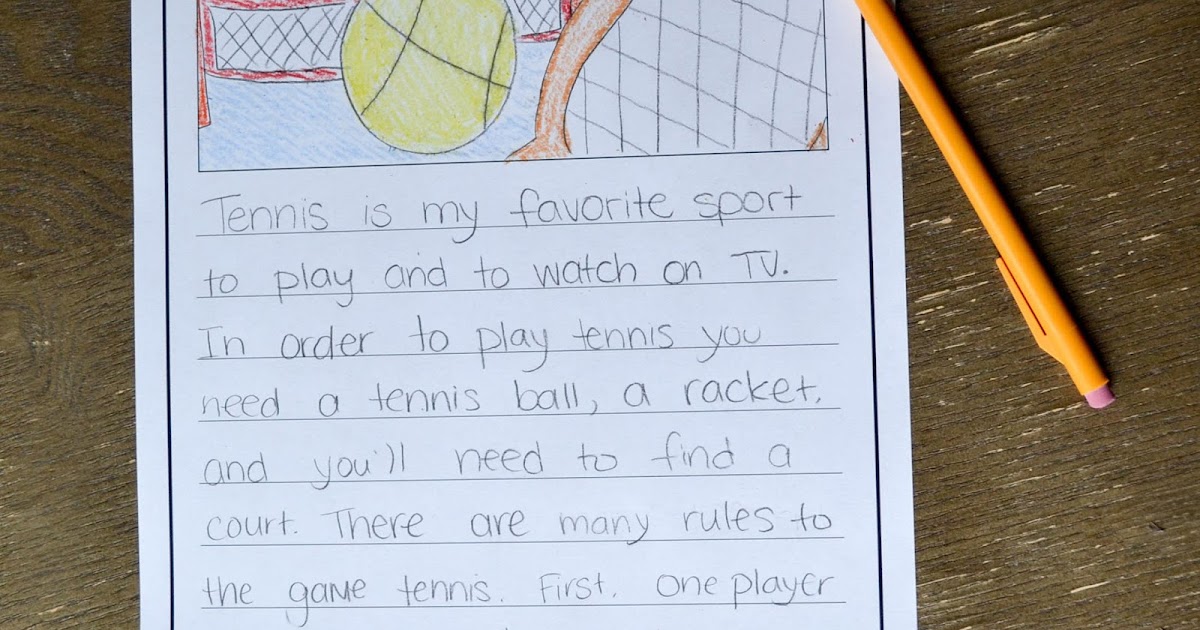 Tennis is my favorite sport
to play and to watch on TV.
In order to play tennis you
need a tennis ball, a racket,
and you'll need to find a
court. There are many rules to
the game tennis. First, one player